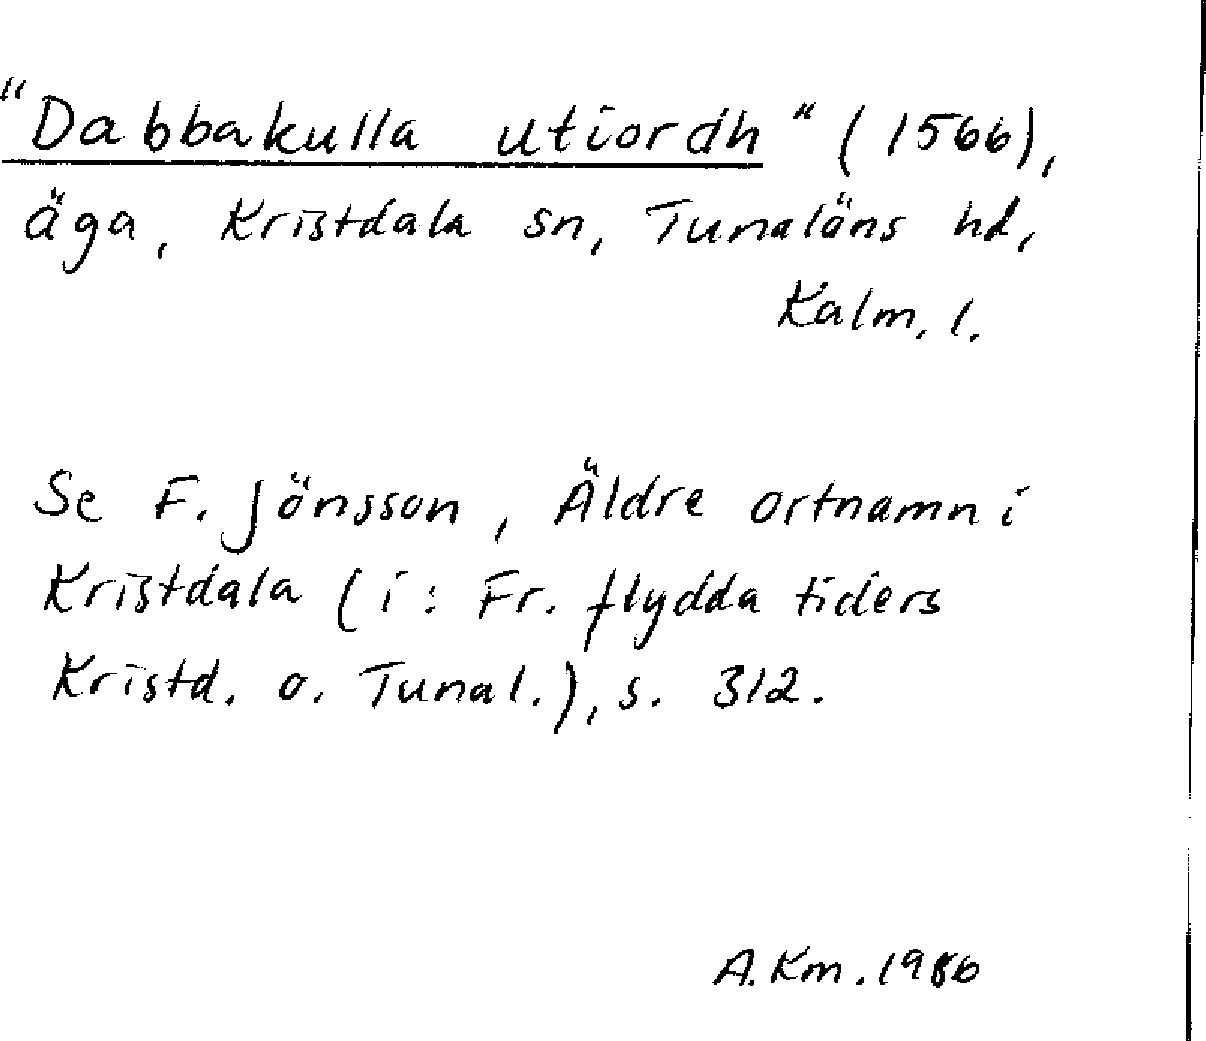 "Dabbakulla utiordh" (1566),
äga, Kristdala sn, Tunaläns hd,
Kalm. l.
Se F. Jönsson, Äldre ortnamn i
Kristdala (i: Fr. flydda tiders
Kristd. o. Tunal.), s. 312.
A. Km. 1986